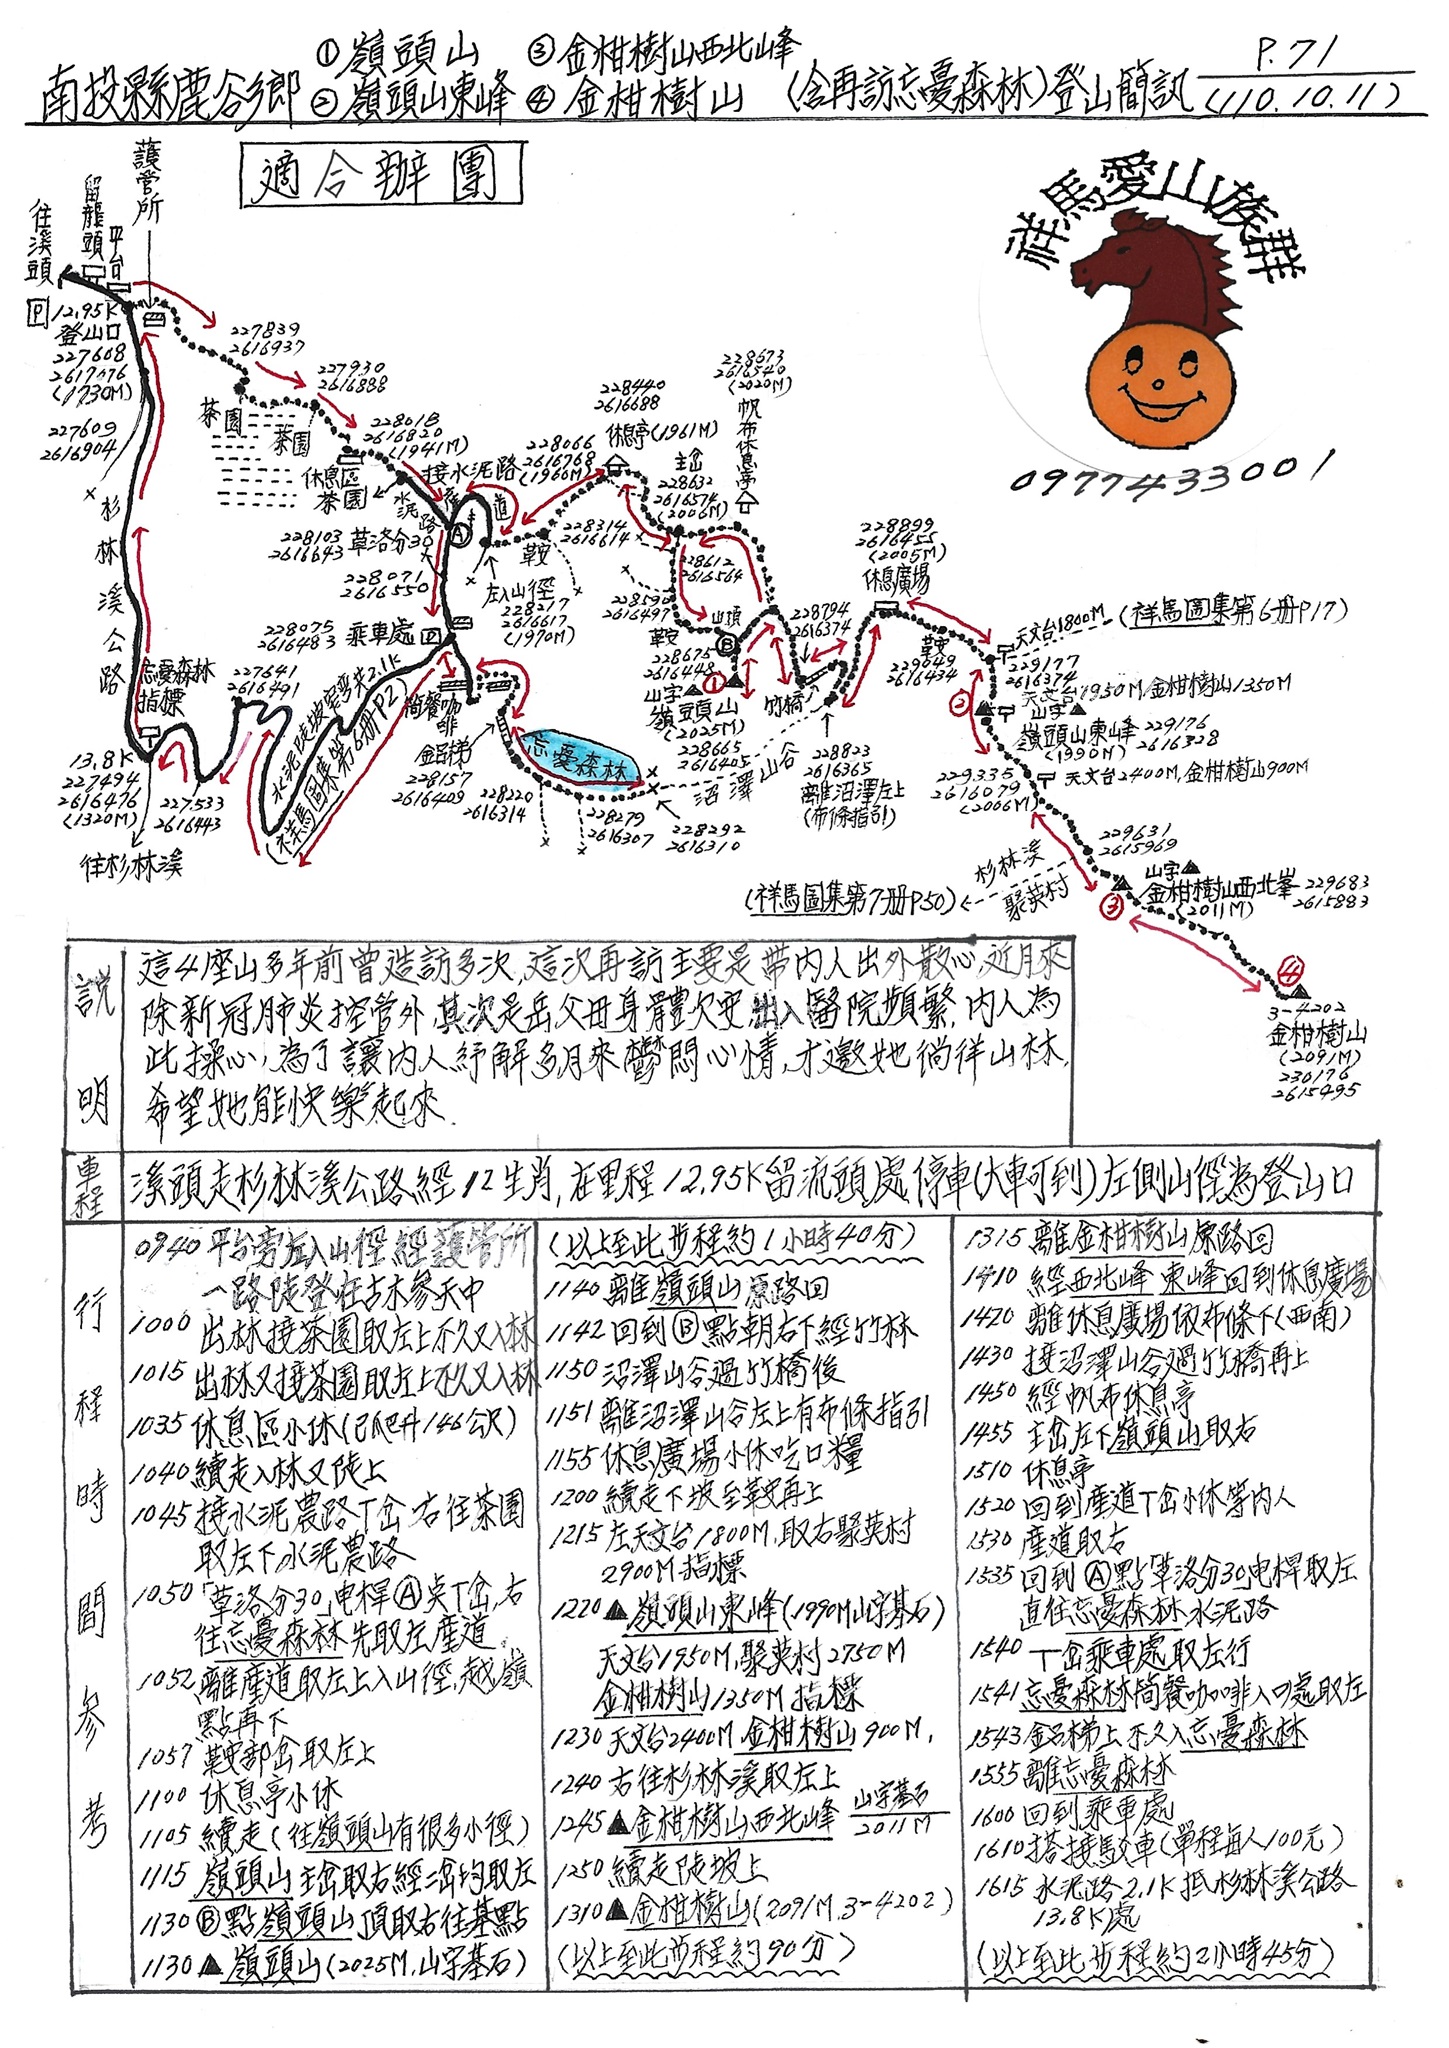 ①嶺頭山 ③金柑樹山西北峰
南投縣鹿谷鄉 ②嶺頭山東峰 ④金柑樹山 (含再訪忘憂森林)登山簡訊 P.71
(110.10.11)
適合辦團
祥馬愛山族群
0977433001
護管所
留龍頭
平台
往溪頭
P 12.95K
登山口
227608
2617076
(1730M)
227609
2616904
杉林溪公路
227839
2616937
227930
2616888
茶園
茶園
228018
2616820
(1941M)
休息區
茶園
水泥路
接水泥路
產道
228066
2616768
(1966M)
228440
2616688
休息亭(1961M)
228673
2616540
(2020M)
帆布休息亭
主岔
228632
2616574
(2006M)
228103
2616643
草洛分30
A
鞍
228314
2616614
左入山徑
228217
2616617
(1970M)
228071
2616550
228075
2616483
乘車處 P
228612
2616564
228590
2616497
鞍
山頂
B
228675
2616448
山字▲
①
嶺頭山
(2025M)
228665
2616405
228794
2616374
竹橋
沼澤山谷
228823
2616365
離沼澤左上
(布條指引)
228899
2616455
(2005M)
休息廣場
鞍
229049
2616434
天文台1800M (祥馬圖集第6册P17)
229177
2616374
天文台1950M/金柑樹山1350M
②
山字▲
嶺頭山東峰 229176
(1990M) 2616328
天文台2400M,金柑樹山900M
229335
2616079
(2066M)
229631
2615969
杉林溪
聚英村
(祥馬圖集第7册P50)
山字▲
金柑樹山西北峯 229683
(2011M) 2615883
③
④
3-4202
金柑樹山
(2091M)
230176
2615495
忘憂森林
指標
227641
2616491
13.8K
227494
2616476
(1320M)
227533
2616443
往杉林溪
(祥馬圖集第6册P2)
簡餐咖啡
鋁梯
228157
2616409
228220
2616314
忘憂森林
228279
2616307
228292
2616310
說明
這4座山多年前曾造訪多次,這次再訪主要是帶內人出外散心,近月來
除新冠肺炎控管外,其次是岳父母身體欠安,出入醫院頻繁,內人為
此操心,為了讓內人紓解多月來鬱悶心情,才邀她徜徉山林,
希望她能快樂起來.
車程
溪頭走杉林溪公路經12生肖,在里程12.95K留流頭處停車(大車可到)左側山徑為登山口
行程時間參考
0940 平台旁左入山徑經護管所
一路陡登在古木參天中
1000 出林接茶園取左上不久又入林
1015 出林又接茶園取左上不久又入林
1035 休息區小休(已爬升146公尺)
1040 續走入林又陡上
1045 接水泥農路丁岔右往茶園
取左下水泥農路
1050「草洛分30」电桿Ⓐ点丁岔,右
往忘憂森林先取左產道
1052 離產道取左上入山徑,越嶺
點再下
1057 鞍部岔取左上
1100 休息亭小休
1105 續走(往嶺頭山有很多小徑)
1115 嶺頭山主岔取右經二岔均取左
1130 Ⓑ點嶺頭山頂取右往基點
1130▲嶺頭山(2025M,山字基石)
(以上至此步程約1小時40分)
1140 離嶺頭山原路回
1142 回到Ⓑ點朝右下經竹林
1150 沼澤山谷過竹橋後
1151 離沼澤山谷左上有布條指引
1155 休息廣場小休吃口糧
1200 續走下坡至鞍再上
1215 左天文台1800M,取右聚英村
2900M指標
1220▲嶺頭山東峰(1990M山字基石)
天文台1950M,聚英村2750M
金柑樹山1350M指標
1230 天文台2400M,金柑樹山900M,
1240 右往杉林溪取左上
1245▲金柑樹山西北峰 山字基石
2011M
1250 續走陡坡上
1310▲金柑樹山(2091M,3-4202)
(以上至此步程約90分)
1315 離金柑樹山原路回
1410 經西北峰 東峰回到休息廣場
1420 離休息廣場依布條下(西南)
1430 接沼澤山谷過竹橋再上
1450 經帆布休息亭
1455 主岔左下嶺頭山取右
1510 休息亭
1520 回到產道丁岔小休等內人
1530 產道取右
1535 回到Ⓐ點「草洛分30」电桿取左
直往忘憂森林水泥路
1540 丁岔乘車處取左行
1541 忘憂森林簡餐咖啡入口處取左
1543 鋁梯上不久入忘憂森林
1555 離忘憂森林
1600 回到乘車處
1610 搭接駁車(單程每人100元)
1615 水泥路2.1K抵杉林溪公路
13.8K處
(以上至此步程約2小時45分)